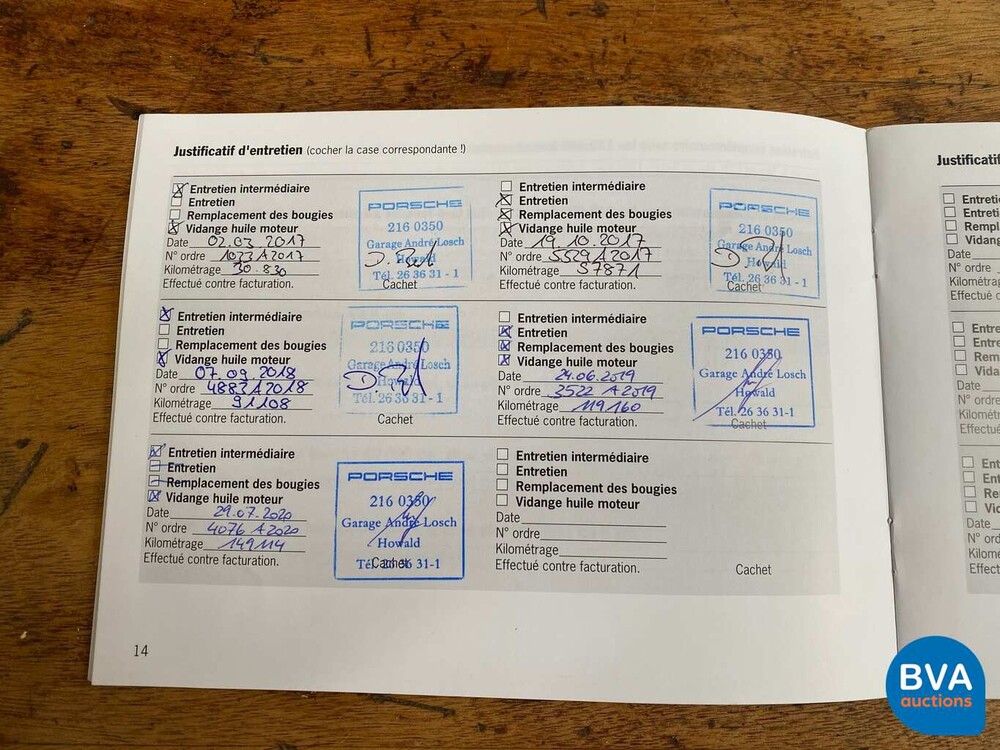 Justificatif d'entretien (cocher la case correspondante !)
Entretien intermédiaire
Entretien
Remplacement des bougies
Vidange huile moteur
Date 02.03.2017
N° ordre 1023A2017
Kilométrage 30.830
Effectué contre facturation.
PORSCHE
216 0350
Garage André Losch
Howald
Tél. 26 36 31 - 1
Cachet
Entretien intermédiaire
Entretien
Remplacement des bougies
Vidange huile moteur
Date 19.10.2017
N° ordre 5529A2017
Kilométrage 57871
Effectué contre facturation.
PORSCHE
216 0350
Garage André Losch
Howald
Tél. 26 36 31 - 1
Cachet
Entretien intermédiaire
Entretien
Remplacement des bougies
Vidange huile moteur
Date 07.09.2018
N° ordre 4883A2018
Kilométrage 91108
Effectué contre facturation.
PORSCHE
216 0350
Garage André Losch
Howald
Tél. 26 36 31 - 1
Cachet
Entretien intermédiaire
Entretien
Remplacement des bougies
Vidange huile moteur
Date 24.06.2019
N° ordre 3522 A2019
Kilométrage 119160
Effectué contre facturation.
PORSCHE
216 0350
Garage André Losch
Howald
Tél. 26 36 31-1
Cachet
Entretien intermédiaire
Entretien
Remplacement des bougies
Vidange huile moteur
Date 29.07.2020
N° ordre 4076 A2020
Kilométrage 149114
Effectué contre facturation.
PORSCHE
216 0350
Garage André Losch
Howald
Tél. 26 36 31-1
Cachet
Entretien intermédiaire
Entretien
Remplacement des bougies
Vidange huile moteur
Date
N° ordre
Kilométrage
Effectué contre facturation.
Cachet
14
Justificatif
BVA
auctions